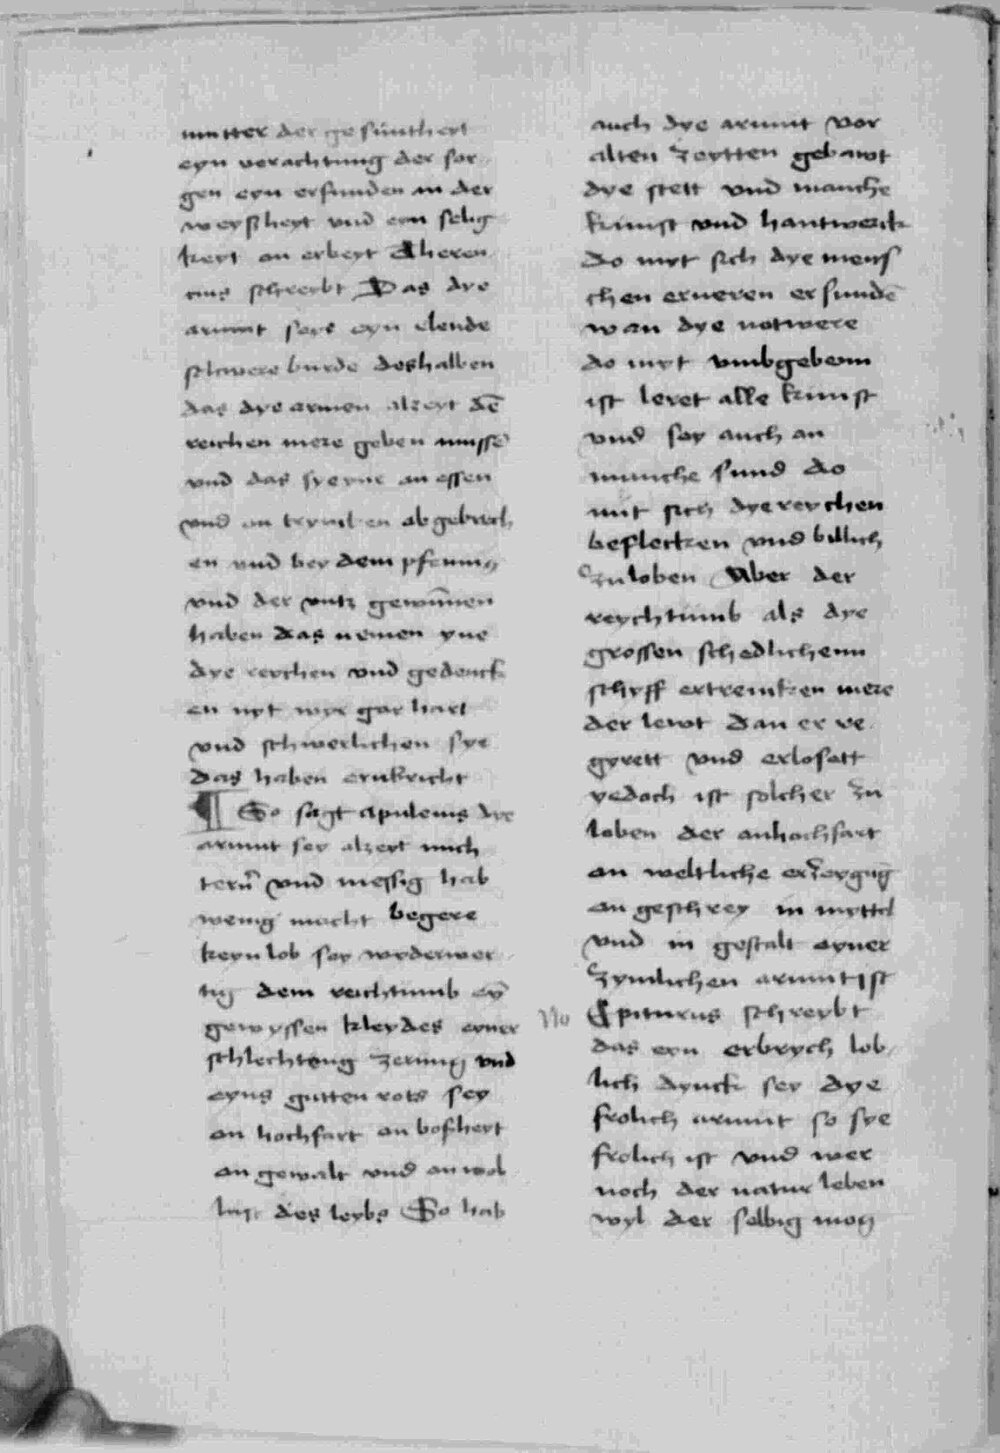 mutter der gesuntheyt
eyn verachtung der sor
gen eyn erfunden in der
weyßheyt vnd eyn selig
keyt an erbeyt Theren
cius schreybt Das dye
armut seys eyn elende
schwere burde deshalben
das dye armen alzeyt dē
reichen mere geben mussē
vnd das sye yne an essen
vnd an tryncken abgebroch
en vnd bey dem pfenning
vnd der nutz gewūnen
haben das nemen yne
dye reychen vnd gedenck
en nyt wye gar hart
vnd schwerlichen sye
das haben erukricht
¶ So sagt apuleius dye
armut sey alzeyt nuch
terñ vnd messig hab
wenig macht begere
keyn lob sey wyderwer
tig dem reichtumb ey͂
gewyssen kleydes eyner
schlechteng zerung vnd
eyns gutten rots sey
an hochfart an boßheyt
an gewalt vnd an wol
lust des leybs So hab
auch dye armut vor
alten zeytten gebawt
dye stett vnd manche
kunst vnd hantwerck
do myt sich dye mens
chen erneren erfundē
wan dye notwere
do myt vmbgebenn
ist leret alle kunst
vnd sey auch an
manche sund do
mit sich dye reychen
beflecken vnd billich
zu loben Aber der
reychtumb als dye
grossen schedlichenn
schyff ertrencken mere
der lewt dan er re
gyrett vnd erlosett
yedoch ist solcher zu
loben der an hochfart
an weltliche erzeygūg
an geschrey in myttel
vnd in gestalt eyner
zymlichen armut ist
No Epicurus schreybt
das eyn erbrych lob
lich dynck sey dye
frolich armut so sye
frolich ist vnd wer
noch der natur leben
wyl der selbig mog